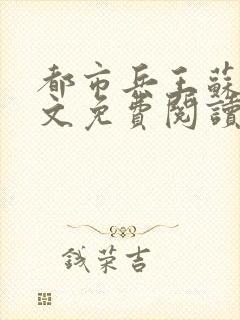 都市兵王蘇
文免費閱讀
钱荣吉